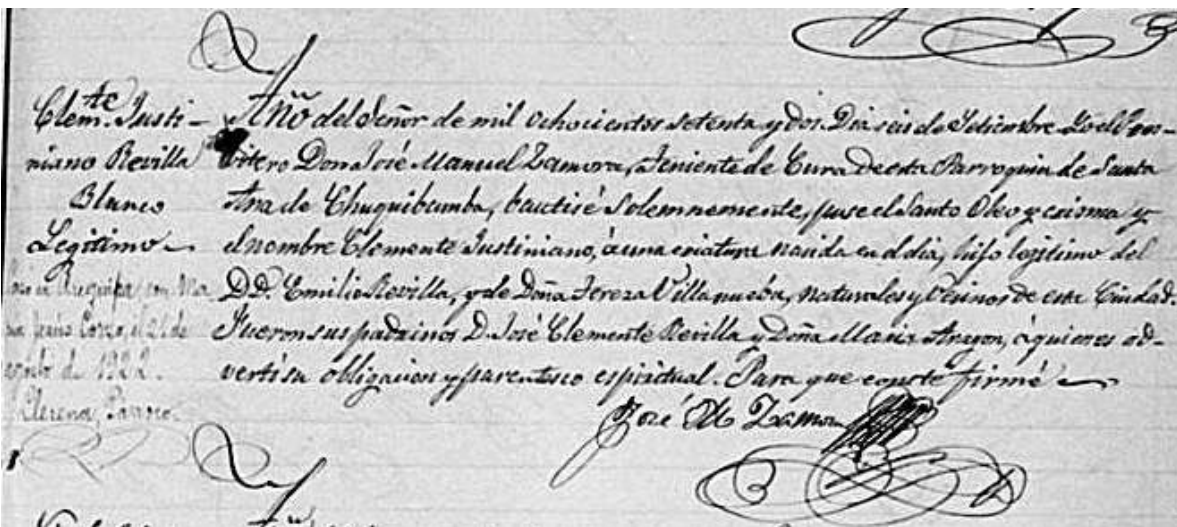 Clem.te Justi-
niano Revilla
Blanco
Legitimo
en Arequipa con Ma
el 21 de
de 1922.
Llerena, Parroco.
Año del Señor de mil ochocientos setenta y dos. Dia seis de Setiembre. Yo el Pres-
vitero Don José Manuel Zamora, Teniente de Cura de esta Parroquia de Santa
Ana de Chuquibamba, bautisé solemnemente, puse el Santo Oleo y crisma y
el nombre Clemente Justiniano, á una criatura nasida en el dia, hijo legitimo del
D.D. Emilio Revilla, y de Doña Tereza Villanueba, naturales y Vesinos de esta Ciudad.
Fueron sus padrinos D. José Clemente Revilla y Doña Maria Aragon, á quienes ad-
vertí su obligacion y parentesco espiritual. Para que conste firmé
José M Zamora